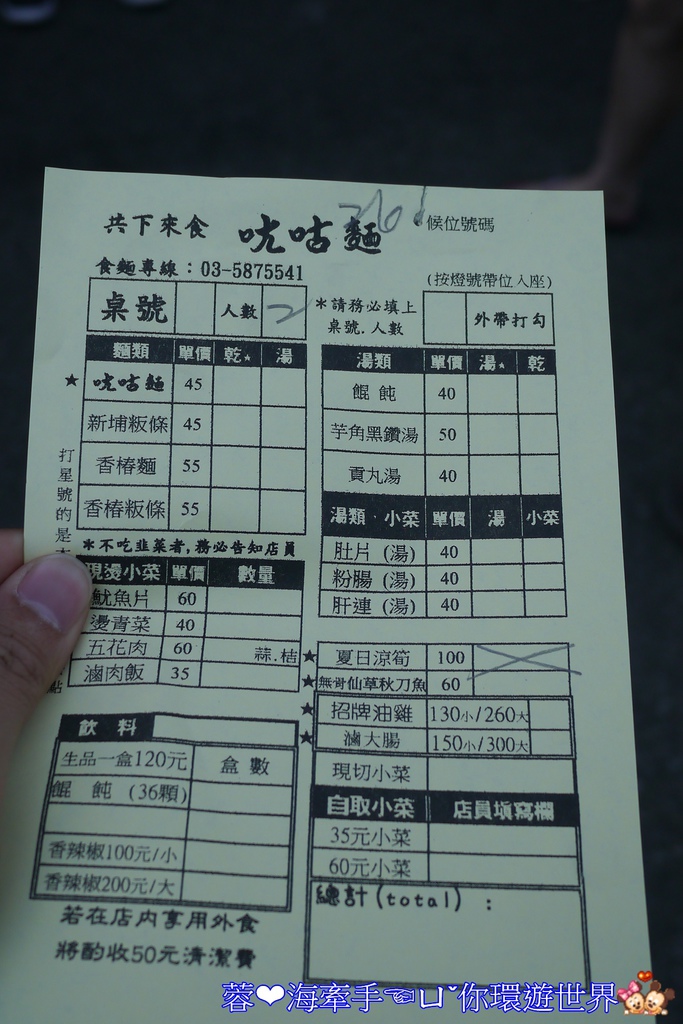 共下來食 咣咕麵 候位號碼
食麵專線：03-5875541 (按燈號帶位入座)
桌號 人數 2 *請務必填上
桌號.人數 外帶打勾
麵類 單價 乾★ 湯
★ 咣咕麵 45
新埔粄條 45
香椿麵 55
香椿粄條 55
打星號的是
*不吃韭菜者,務必告知店員
現燙小菜 單價 數量
魷魚片 60
燙青菜 40
五花肉 60 蒜.桔
滷肉飯 35
點
飲料
生品一盒120元 盒數
餛飩 (36顆)
香辣椒100元/小
香辣椒200元/大
若在店內享用外食
將酌收50元清潔費
湯類 單價 湯★ 乾
餛飩 40
芋角黑鑽湯 50
貢丸湯 40
湯類．小菜 單價 湯 小菜
肚片 (湯) 40
粉腸 (湯) 40
肝連 (湯) 40
★ 夏日涼筍 100
★ 無骨仙草秋刀魚 60
★ 招牌油雞 130小/260大
★ 滷大腸 150小/300大
現切小菜
自取小菜 店員填寫欄
35元小菜
60元小菜
總計(total)：
蓉❤海牽手☜ㄩˇ你環遊世界